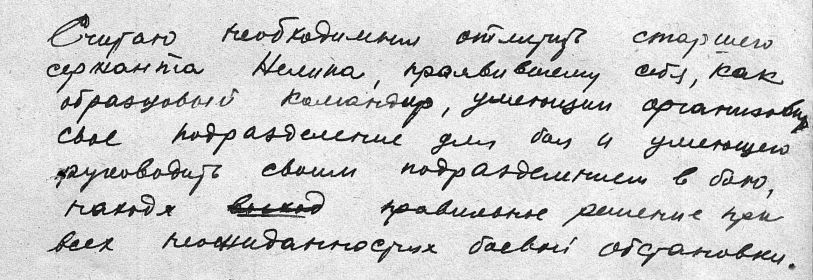 Считаю необходимым отметить старшего
сержанта Нелипа, проявившему себя, как
образцовый командир, умеющий организовать
свое подразделение для боя и умеющего
руководить своим подразделением в бою,
находя выход правильное решение при
всех неожиданностях боевой обстановки.